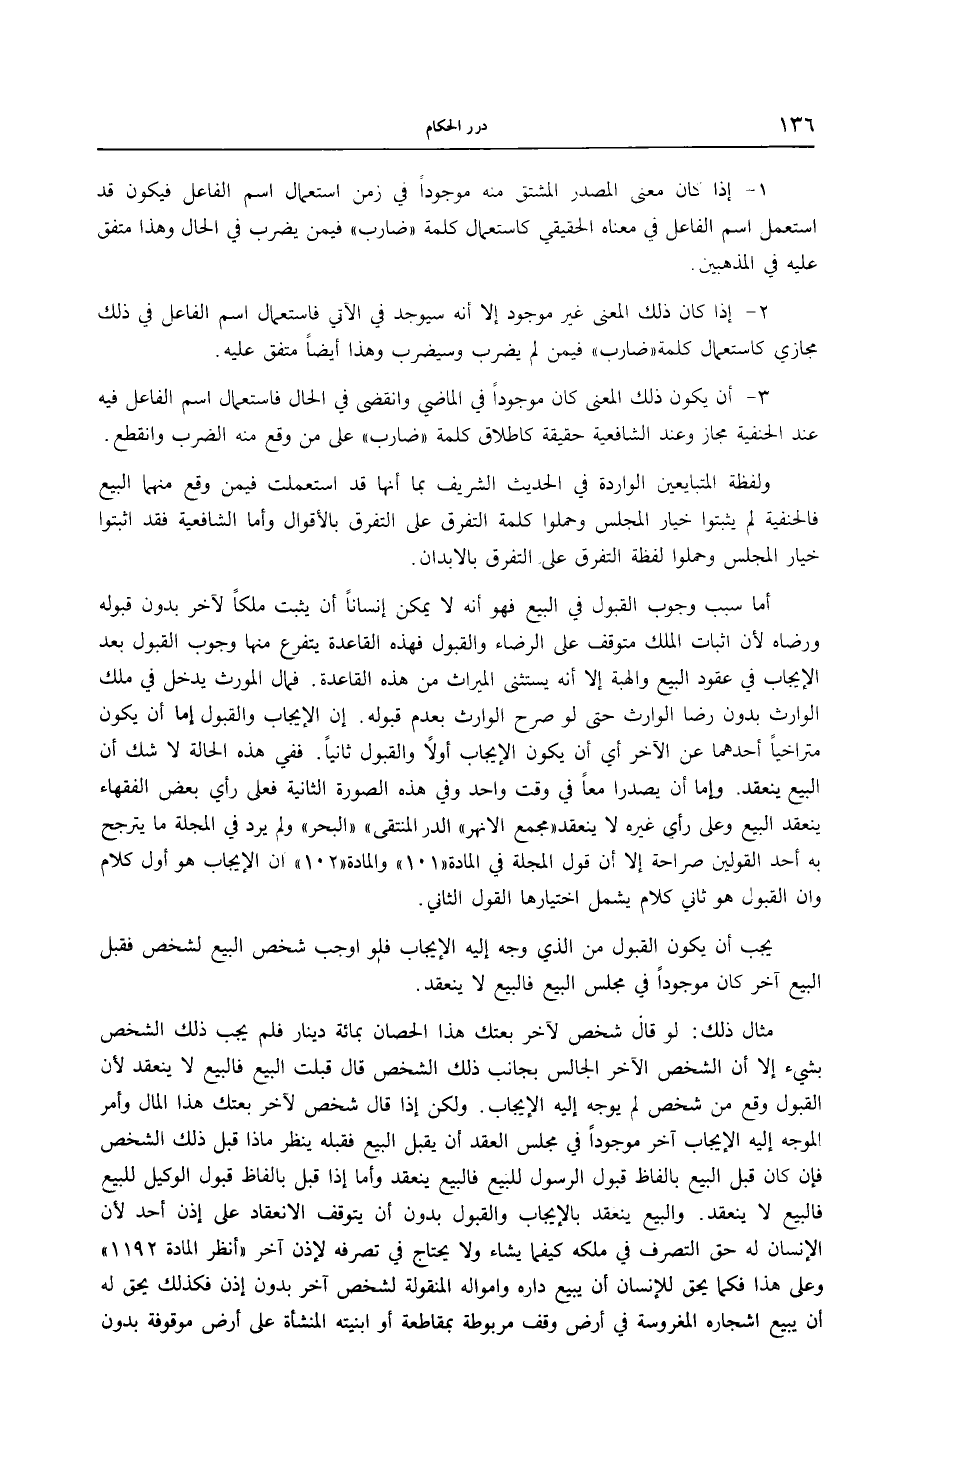 ١٣٦
درر الحكام
١- إذا كان معنى المصدر المشتق منه موجوداً في زمن استعمال اسم الفاعل فيكون قد
استعمل اسم الفاعل في معناه الحقيقي كاستعمال كلمة «ضارب» فيمن يضرب في الحال وهذا متفق
عليه في المذهبين.
٢- إذا كان ذلك المعنى غير موجود إلا أنه سيوجد في الآتي فاستعمال اسم الفاعل في ذلك
مجازي كاستعمال كلمة«ضارب» فيمن لم يضرب وسيضرب وهذا أيضاً متفق عليه.
٣- أن يكون ذلك المعنى كان موجوداً في الماضي وانقضى في الحال فاستعمال اسم الفاعل فيه
عند الحنفية مجاز وعند الشافعية حقيقة كاطلاق كلمة «ضارب» على من وقع منه الضرب وانقطع.
ولفظة المتبايعين الواردة في الحديث الشريف بما أنها قد استعملت فيمن وقع منهما البيع
فالحنفية لم يثبتوا خيار المجلس وحملوا كلمة التفرق على التفرق بالأقوال وأما الشافعية فقد اثبتوا
خيار المجلس وحملوا لفظة التفرق على التفرق بالابدان.
أما سبب وجوب القبول في البيع فهو أنه لا يمكن إنساناً أن يثبت ملكاً لآخر بدون قبوله
ورضاه لأن اثبات الملك متوقف على الرضاء والقبول فهذه القاعدة يتفرع منها وجوب القبول بعد
الإيجاب في عقود البيع والهبة إلا أنه يستثنى الميراث من هذه القاعدة. فمال المورث يدخل في ملك
الوارث بدون رضا الوارث حتى لو صرح الوارث بعدم قبوله. إن الإيجاب والقبول إما أن يكون
متراخياً أحدهما عن الآخر أي أن يكون الإيجاب أولًا والقبول ثانياً. ففي هذه الحالة لا شك أن
البيع ينعقد. وإما أن يصدرا معاً في وقت واحد وفي هذه الصورة الثانية فعلى رأي بعض الفقهاء
ينعقد البيع وعلى رأي غيره لا ينعقد«مجمع الانهر» الدر المنتقى» «البحر» ولم يرد في المجلة ما يترجح
به أحد القولين صراحة إلا أن قول المجلة في المادة«١٠١» والمادة«١٠٢» ان الإيجاب هو أول كلام
وان القبول هو ثاني كلام يشمل اختيارها القول الثاني.
يجب أن يكون القبول من الذي وجه إليه الإيجاب فلو اوجب شخص البيع لشخص فقبل
البيع آخر كان موجوداً في مجلس البيع فالبيع لا ينعقد.
مثال ذلك: لو قال شخص لآخر بعتك هذا الحصان بمائة دينار فلم يجب ذلك الشخص
بشيء إلا أن الشخص الآخر الجالس بجانب ذلك الشخص قال قبلت البيع فالبيع لا ينعقد لأن
القبول وقع من شخص لم يوجه إليه الإيجاب. ولكن إذا قال شخص لآخر بعتك هذا المال وأمر
الموجه إليه الإيجاب آخر موجوداً في مجلس العقد أن يقبل البيع فقبله ينظر ماذا قبل ذلك الشخص
فإن كان قبل البيع بالفاظ قبول الرسول للبيع فالبيع ينعقد وأما إذا قبل بالفاظ قبول الوكيل للبيع
فالبيع لا ينعقد. والبيع ينعقد بالإيجاب والقبول بدون أن يتوقف الانعقاد على إذن أحد لأن
الإنسان له حق التصرف في ملكه كيفما يشاء ولا يحتاج في تصرفه لإذن آخر «أنظر المادة ١١٩٢»
وعلى هذا فكما يحق للإنسان أن يبيع داره وامواله المنقولة لشخص آخر بدون إذن فكذلك يحق له
أن يبيع اشجاره المغروسة في أرض وقف مربوطة بمقاطعة أو ابنيته المنشأة على أرض موقوفة بدون